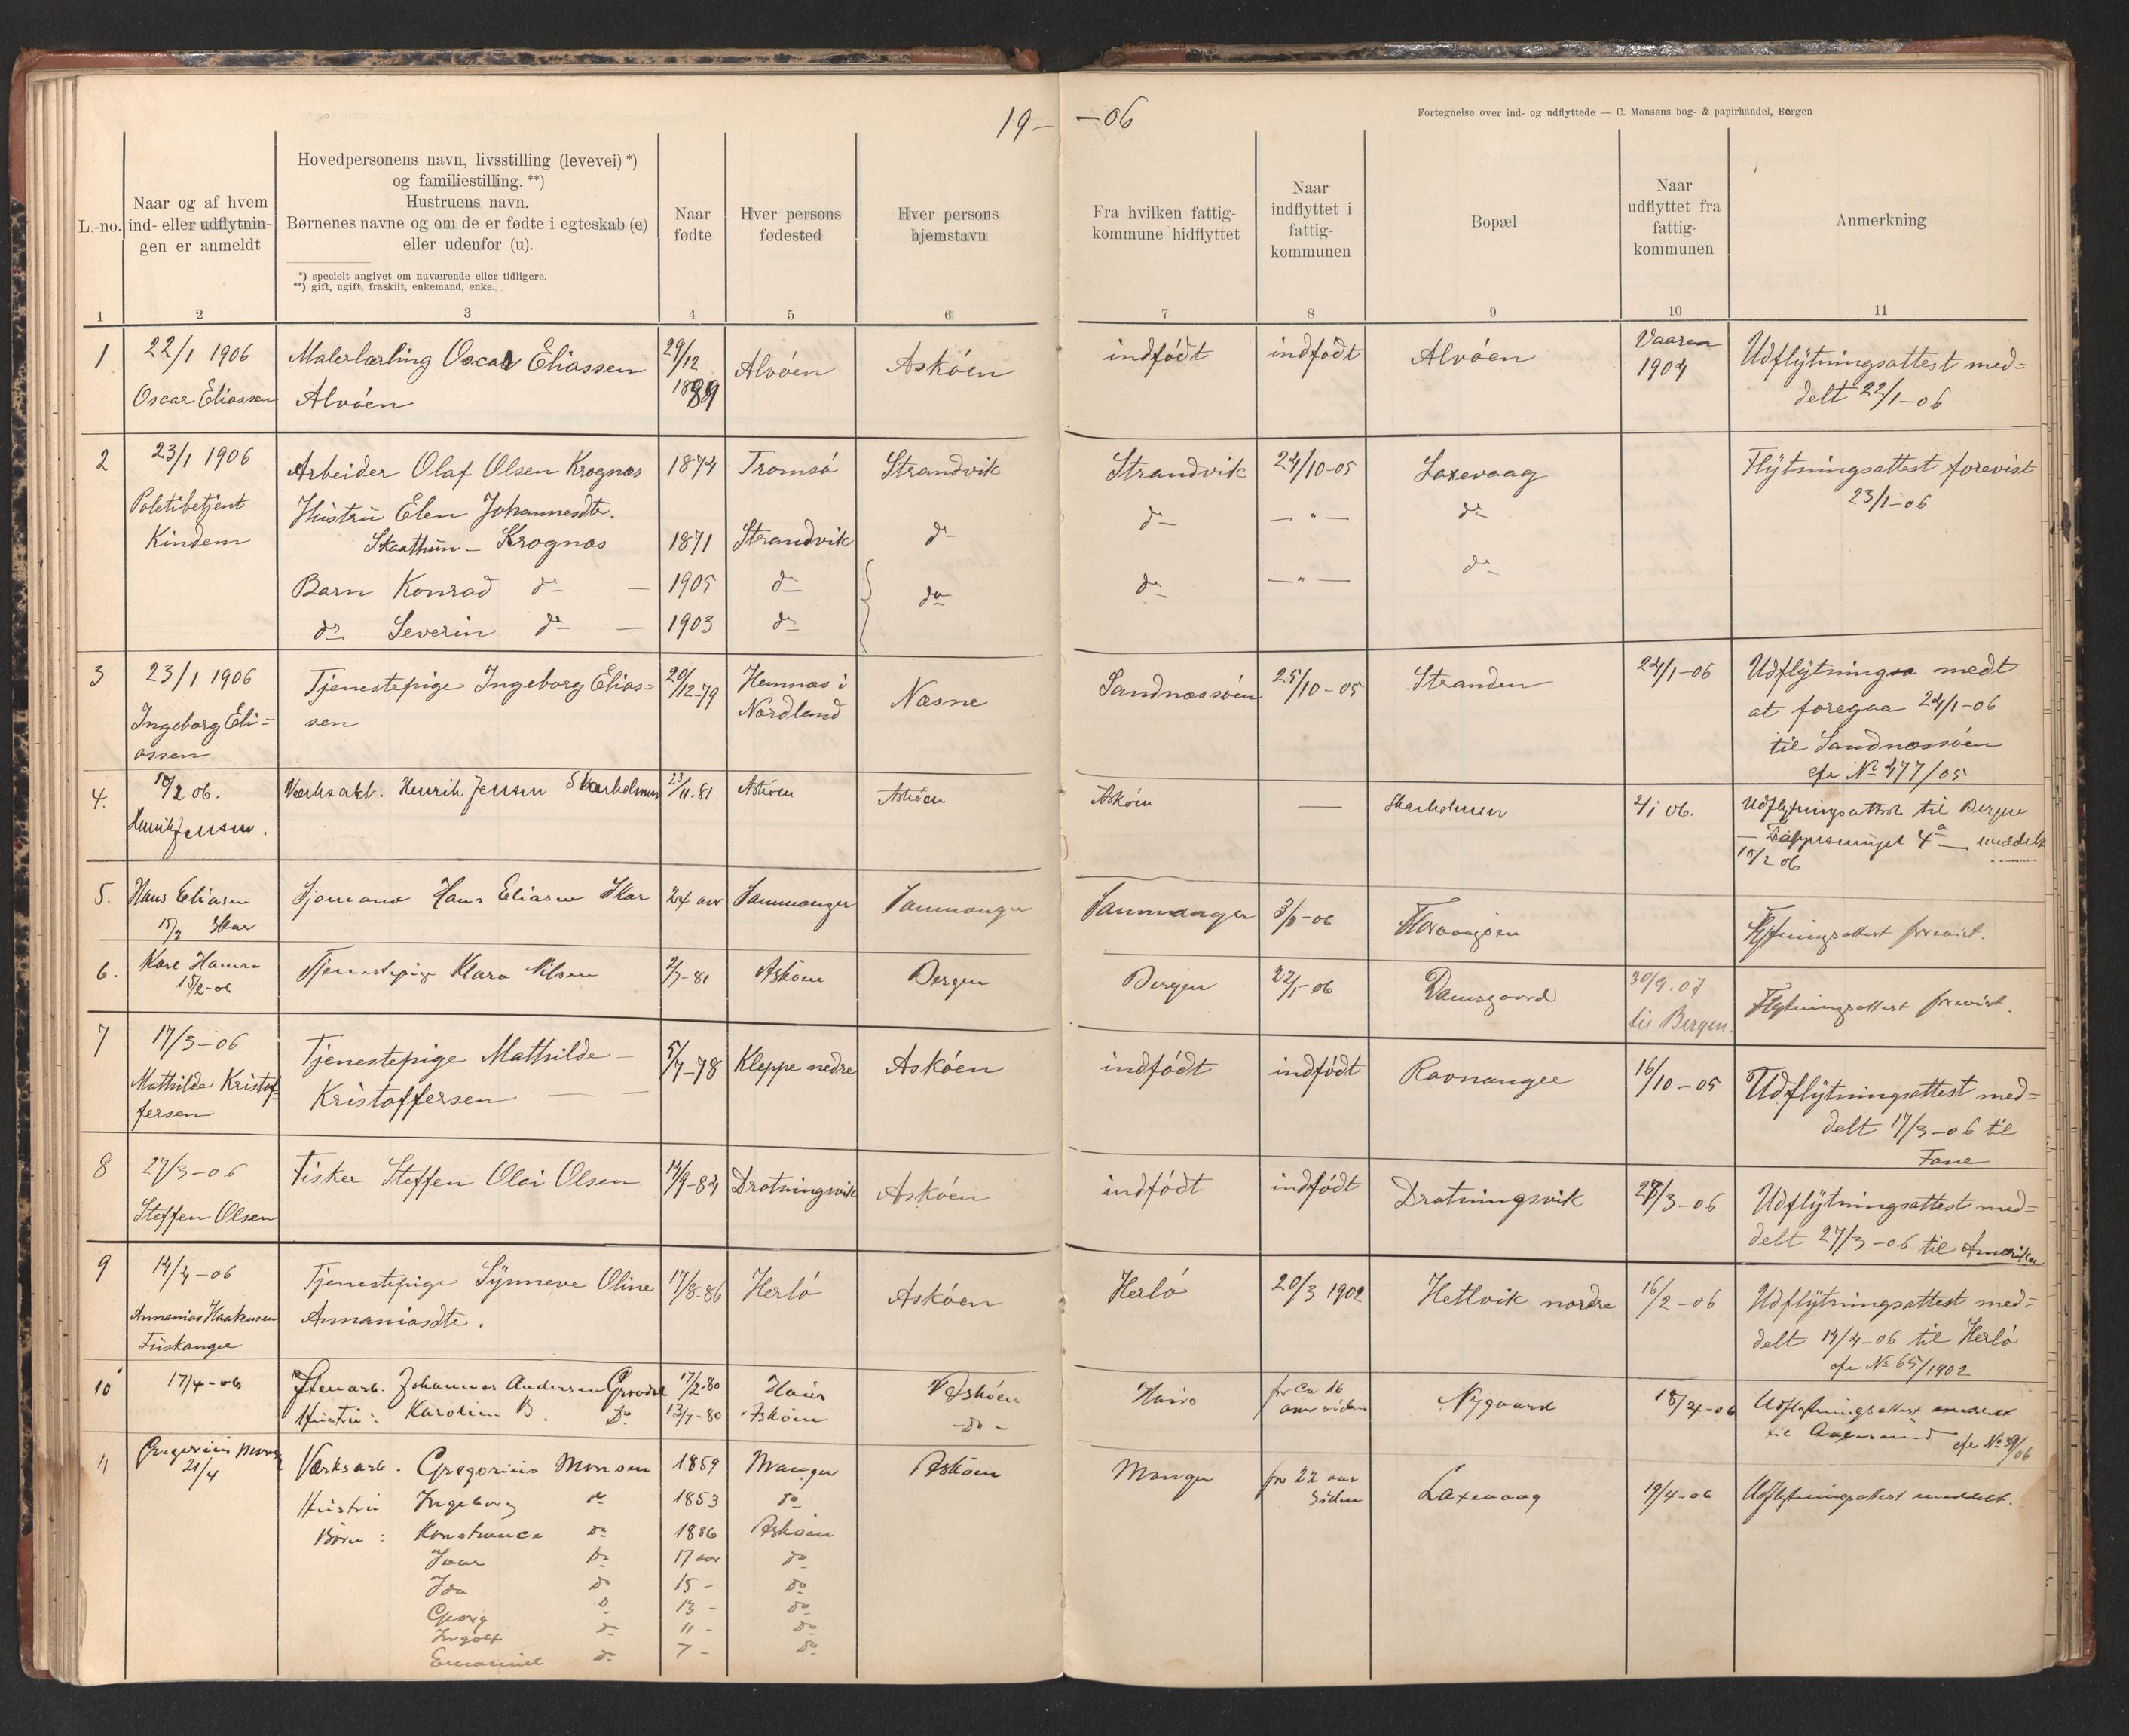 19- -06
Fortegnelse over ind- og udflyttede — C. Monsens bog- & papirhandel, Bergen
L.-no.
Naar og af hvem
ind- eller udflytnin-
gen er anmeldt
Hovedpersonens navn, livsstilling (levevei) *)
og familiestilling. **)
Hustruens navn.
Børnenes navne og om de er fødte i egteskab (e)
eller udenfor (u).
*) specielt angivet om nuværende eller tidligere.
**) gift, ugift, fraskilt, enkemand, enke.
Naar
fødte
Hver persons
fødested
Hver persons
hjemstavn
Fra hvilken fattig-
kommune hidflyttet
Naar
indflyttet i
fattig-
kommunen
Bopæl
Naar
udflyttet fra
fattig-
kommunen
Anmerkning
1 2 3 4 5 6 7 8 9 10 11
1
22/1 1906
Oscar Eliassen
Malerlærling Oscar Eliassen
Alvøen
29/12
1889
Alvøen
Askøen
indfødt
indfødt
Alvøen
Vaaren
1904
Udflytningsattest med=
delt 22/1-06
2
23/1 1906
Politibetjent
Kindem
Arbeider Olaf Olsen Krognæs 1874 Tromsø Strandvik
Hustru Elen Johannesdtr.
Skaathun - Krognæs 1871 Strandvik do
Barn Konrad do - 1905 do
do Severin do - 1903 do
do
Strandvik 24/10-05 Laxevaag
do - " - do
do - " - do
Flytningsattest forevist
23/1-06
3
23/1 1906
Ingeborg Eli=
assen
Tjenestepige Ingeborg Elias=
sen
20/12-79
Hemnæs i
Nordland
Næsne
Sandnessøen
25/10-05
Stranden
24/1-06
Udflytningsa medt
at foregaa 24/1-06
til Sandnæssøen
cfr No 477/05
4.
10/2 06.
Henrik Jensen.
Værksarb. Henrik Jensen Skarholmen
23/11.81.
Askøen
Askøen
Askøen
—
Skarholmen
2/1 06.
Udflytningsattest til Bergen
4a — meddelt
10/2 06
5.
Hans Eliasen
15/2 Skar
Sjømand Hans Eliasen Skar
24 aar
Sammanger
Sammanger
Sammanger
Florvaagen
Flytningsattest forevist.
6.
15/2-06
Tjenestepige Klara Nilsen
2/7-81
Askøen
Bergen
Bergen
22/1-06
Damsgaard
30/9.07
til Bergen.
Flytningsattest forevist.
7
17/3-06
Mathilde Kristof=
fersen
Tjenestepige Mathilde -
Kristoffersen — —
5/7-78
Kleppe nedre
Askøen
indfødt
indfødt
Ravnanger
16/10-05
Udflytningsattest med=
delt 17/3-06 til
Fane
8
27/3-06
Steffen Olsen
Fisker Steffen Olai Olsen
14/9-84
Drotningsvik
Askøen
indfødt
indfødt
Drotningsvik
28/3-06
Udflytningsattest med=
delt 27/3-06 til Amerika
9
14/4-06
Annanias Haakensen
Friskanger
Tjenestepige Synneve Oline
Annaniasdtr.
17/8-86
Herlø
Askøen
Herlø
20/3 1902
Hetlvik nordre
16/2-06
Udflytningsattest med=
delt 14/4-06 til Herlø
cfr No 65/1902
10
17/4-06
Stenarb. Johannes Andersen
Hustru: Karoline B. Do.
17/2-80
13/7-80
Askøen
Askøen
- do -
for ca 16
aar siden
Nygaard
18/4-06
Udflytningsattest meddelt
til
11
Gregorius Monsen
21/4
Værksarb. Gregorius Monsen 1859 Manger Askøen
Manger
for 22 aar
siden
Laxevaag
19/4-06
Udflytningsattest meddelt.
Hustru Ingeborg do 1853 do
Børn: Konstance do 1886 Askøen
Ivar do 17 aar do
Ida do 15 - do
Georg do 13 - do
Ingolf do 11 - do
Emanuel do 7 - do